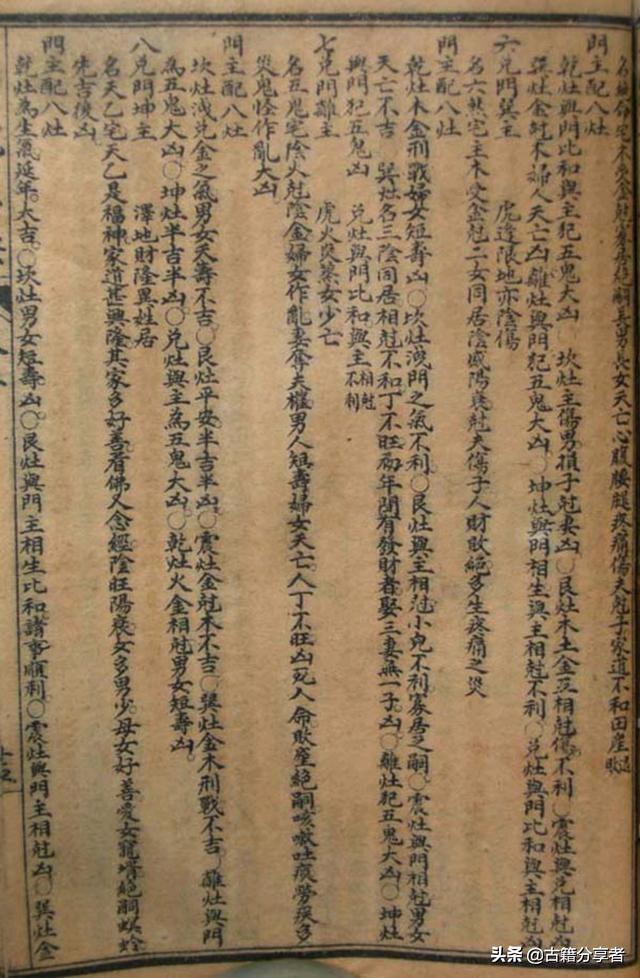 名絕命宅木受金尅寡居絕嗣長男長女夭亡心腹腰腿疼痛傷夫尅子家道不和田産退敗
門主配八灶
乾灶與門比和與主犯五鬼大凶 坎灶主傷男損子尅妻凶○艮灶木土金互相尅傷不利○震灶與兑相尅凶
巽灶金尅木婦人夭亡凶○離灶與門犯五鬼大凶○坤灶與門相生與主相尅不利○兑灶與門比和與主相尅凶
六兑門巽主 虎逢限地亦陰傷
名六煞宅主木受金尅二女同居陰盛陽衰尅夫傷子人財敗絕多生疼痛之災
門主配八灶
乾灶木金刑戰婦女短壽凶○坎灶洩門之氣不利○艮灶與主相尅小兒不利寡居乏嗣○震灶與門相尅男女
夭亡不吉 巽灶名三陰同居相尅不和丁不旺兩年間有發財者娶三妻無一子凶○離灶犯五鬼大凶○坤灶
與門犯五鬼凶 兑灶與門比和與主相尅不利
七兑門離主 虎火炎蒸女少亡
名五鬼宅陰火尅陰金婦女作亂妻奪夫權男人短壽婦女夭亡人丁不旺凶死人命敗産絕嗣咳嗽吐痰勞疾多
災鬼怪作亂大凶
門主配八灶
坎灶洩兑金之氣男女夭壽不吉○艮灶平安半吉半凶○震灶金尅木不吉○巽灶金木刑戰不吉 離灶與門
為五鬼大凶○坤灶半吉半凶○兑灶與主為五鬼大凶○乾灶火金相尅男女短壽凶
八兑門坤主 澤地財隆異姓居
名天乙宅天乙是福神家道甚興隆其家多好善看佛又念經陰旺陽衰女多男少母女好善愛女寵壻絕嗣螟蛉
先吉後凶
門主配八灶
乾灶為生氣延年大吉○坎灶男女短壽凶○艮灶與門主相生比和諸事順利○震灶與門主相尅凶○巽灶金
头条 @古籍分享者